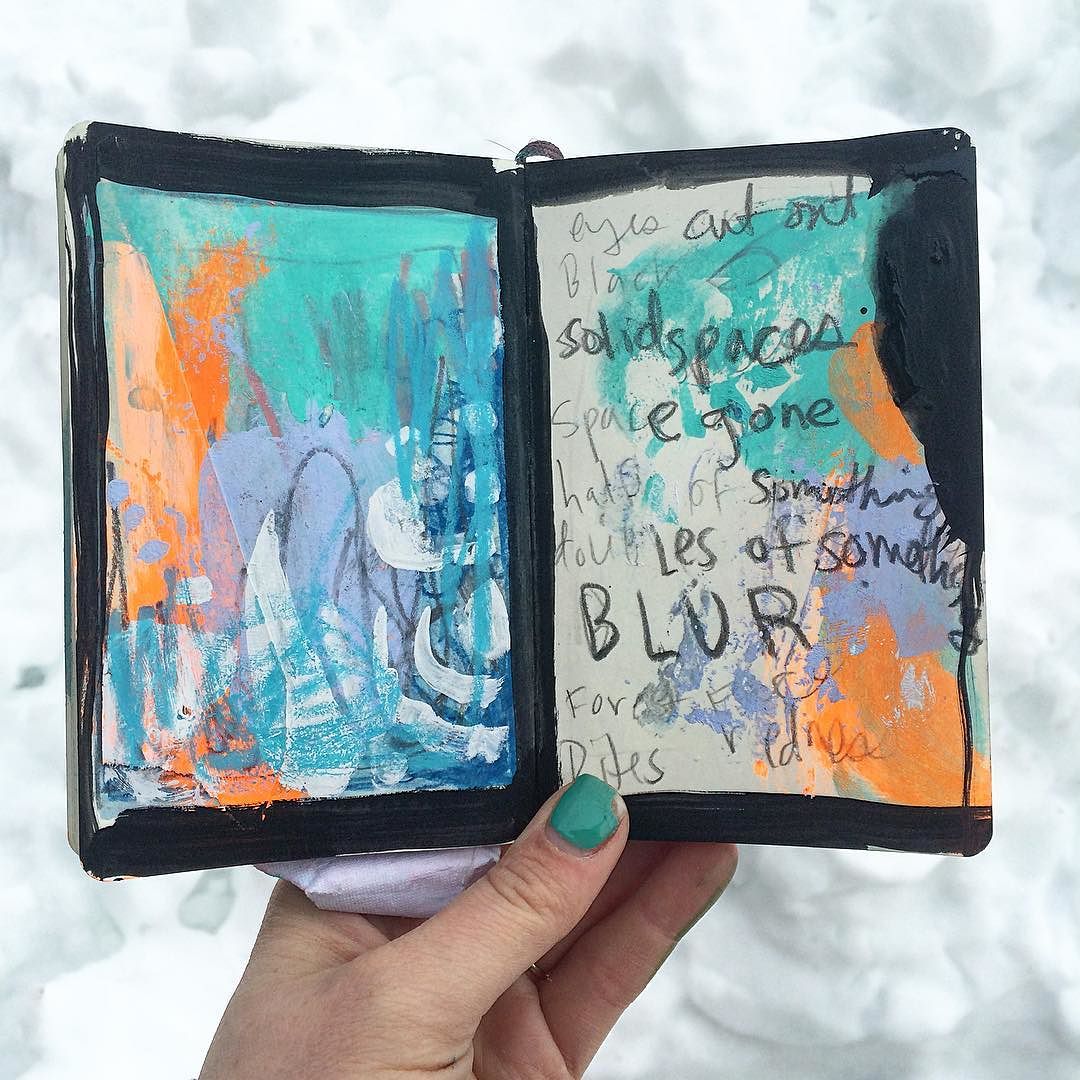 eyes cut out
Black
solid spaces
space gone
half of something
doubles of something
BLUR